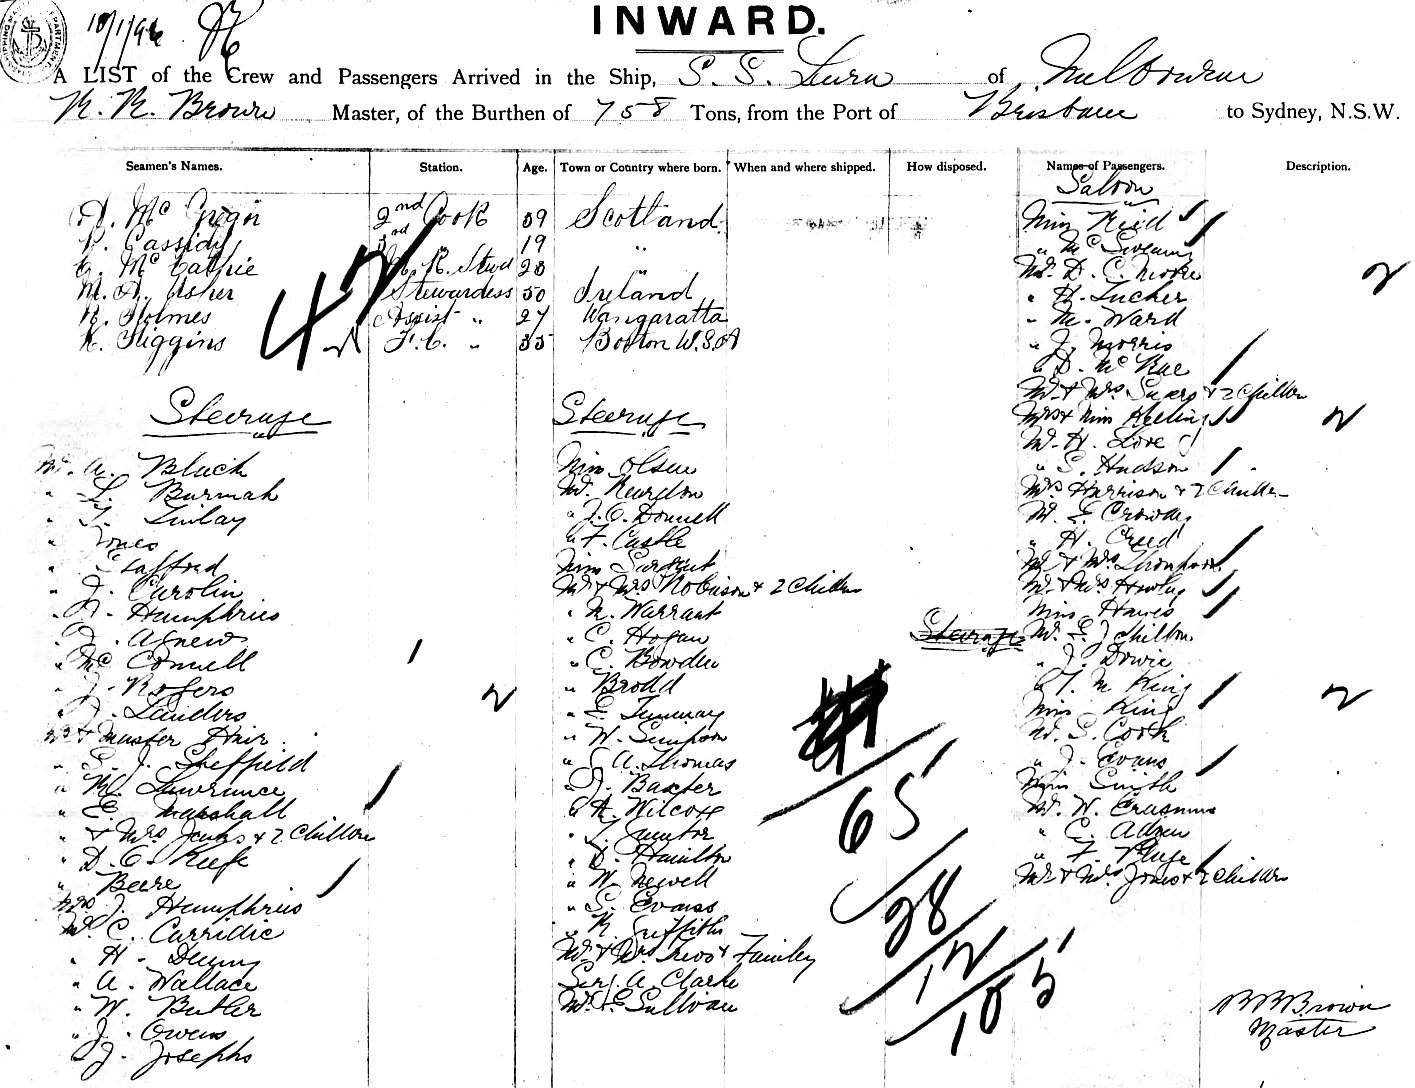 10/1/96
INWARD.
A LIST of the Crew and Passengers Arrived in the Ship, S. S. of Melbourne
Brown Master, of the Burthen of 758 Tons, from the Port of Brisbane to Sydney, N.S.W.
Seamen's Names. Station. Age. Town or Country where born. When and where shipped. How disposed. Names of Passengers. Description.
Saloon
A. McGregor 2nd Cook 39 Scotland
P. Cassidy 3rd " 19 "
Stewd 28 "
M. A. Usher Stewardess 50 Ireland
R. Holmes Assist " 27 Wangaratta
K. Higgins F.C. " 35 Boston U.S.A
47
Miss Reid
" McSweeny
Mr. D. C. Moore
" H. Tucker
" M. Ward
" J. Morris
" D. McRae
Mr & Mrs & 2 Children
Mrs & Miss
Mr. H. Love
" S. Hudson
Mrs Harrison & 2 Children
Mr. E. Crowder
" H. Creed
Mr & Mrs Thompson
Mr & Mrs
Miss Hawes
Mr. E. J. Chilton
" J. Dowie
" T. M King
Miss King
Mr. S. Cook
" J. Evans
Miss Smith
Mr. W. Erasmus
" C.
" F.
Mr & Mrs Jones & 2 Children
Steerage
Mr. A. Black
" L. Burmah
" T. Finlay
" Jones
" Stafford
" J. Carolin
" A. Humphries
" J. Agnew
" McConnell
" J. Rogers
" J. Landers
Mr & Master Hair
" S. J. Sheffield
" Lawrence
" E. Marshall
" & Mrs & 2 Children
" D. O'Keefe
" Beere
Mrs J. Humphries
Mr C. Carridic
" H. Denny
" A. Wallace
" W. Butler
" J. Owens
" J. Josephs
Steerage
Miss Olsen
Mr. Reardon
" J. O. Donnell
" F. Castle
Miss Sargent
Mr & Mrs Robinson & 2 Children
" N. Warrant
" C. Hogan
" C. Bowden
" Brodd
" E.
" W. Simpson
" A. Thomas
" J. Baxter
" A. Wilcox
" L.
" D. Hamilton
" W. Newell
" S. Evans
" R. Griffiths
Mr & Mrs & Family
Serj. A. Clarke
Mr. E. Sullivan
Steerage
65
28
12
105
Brown
Master